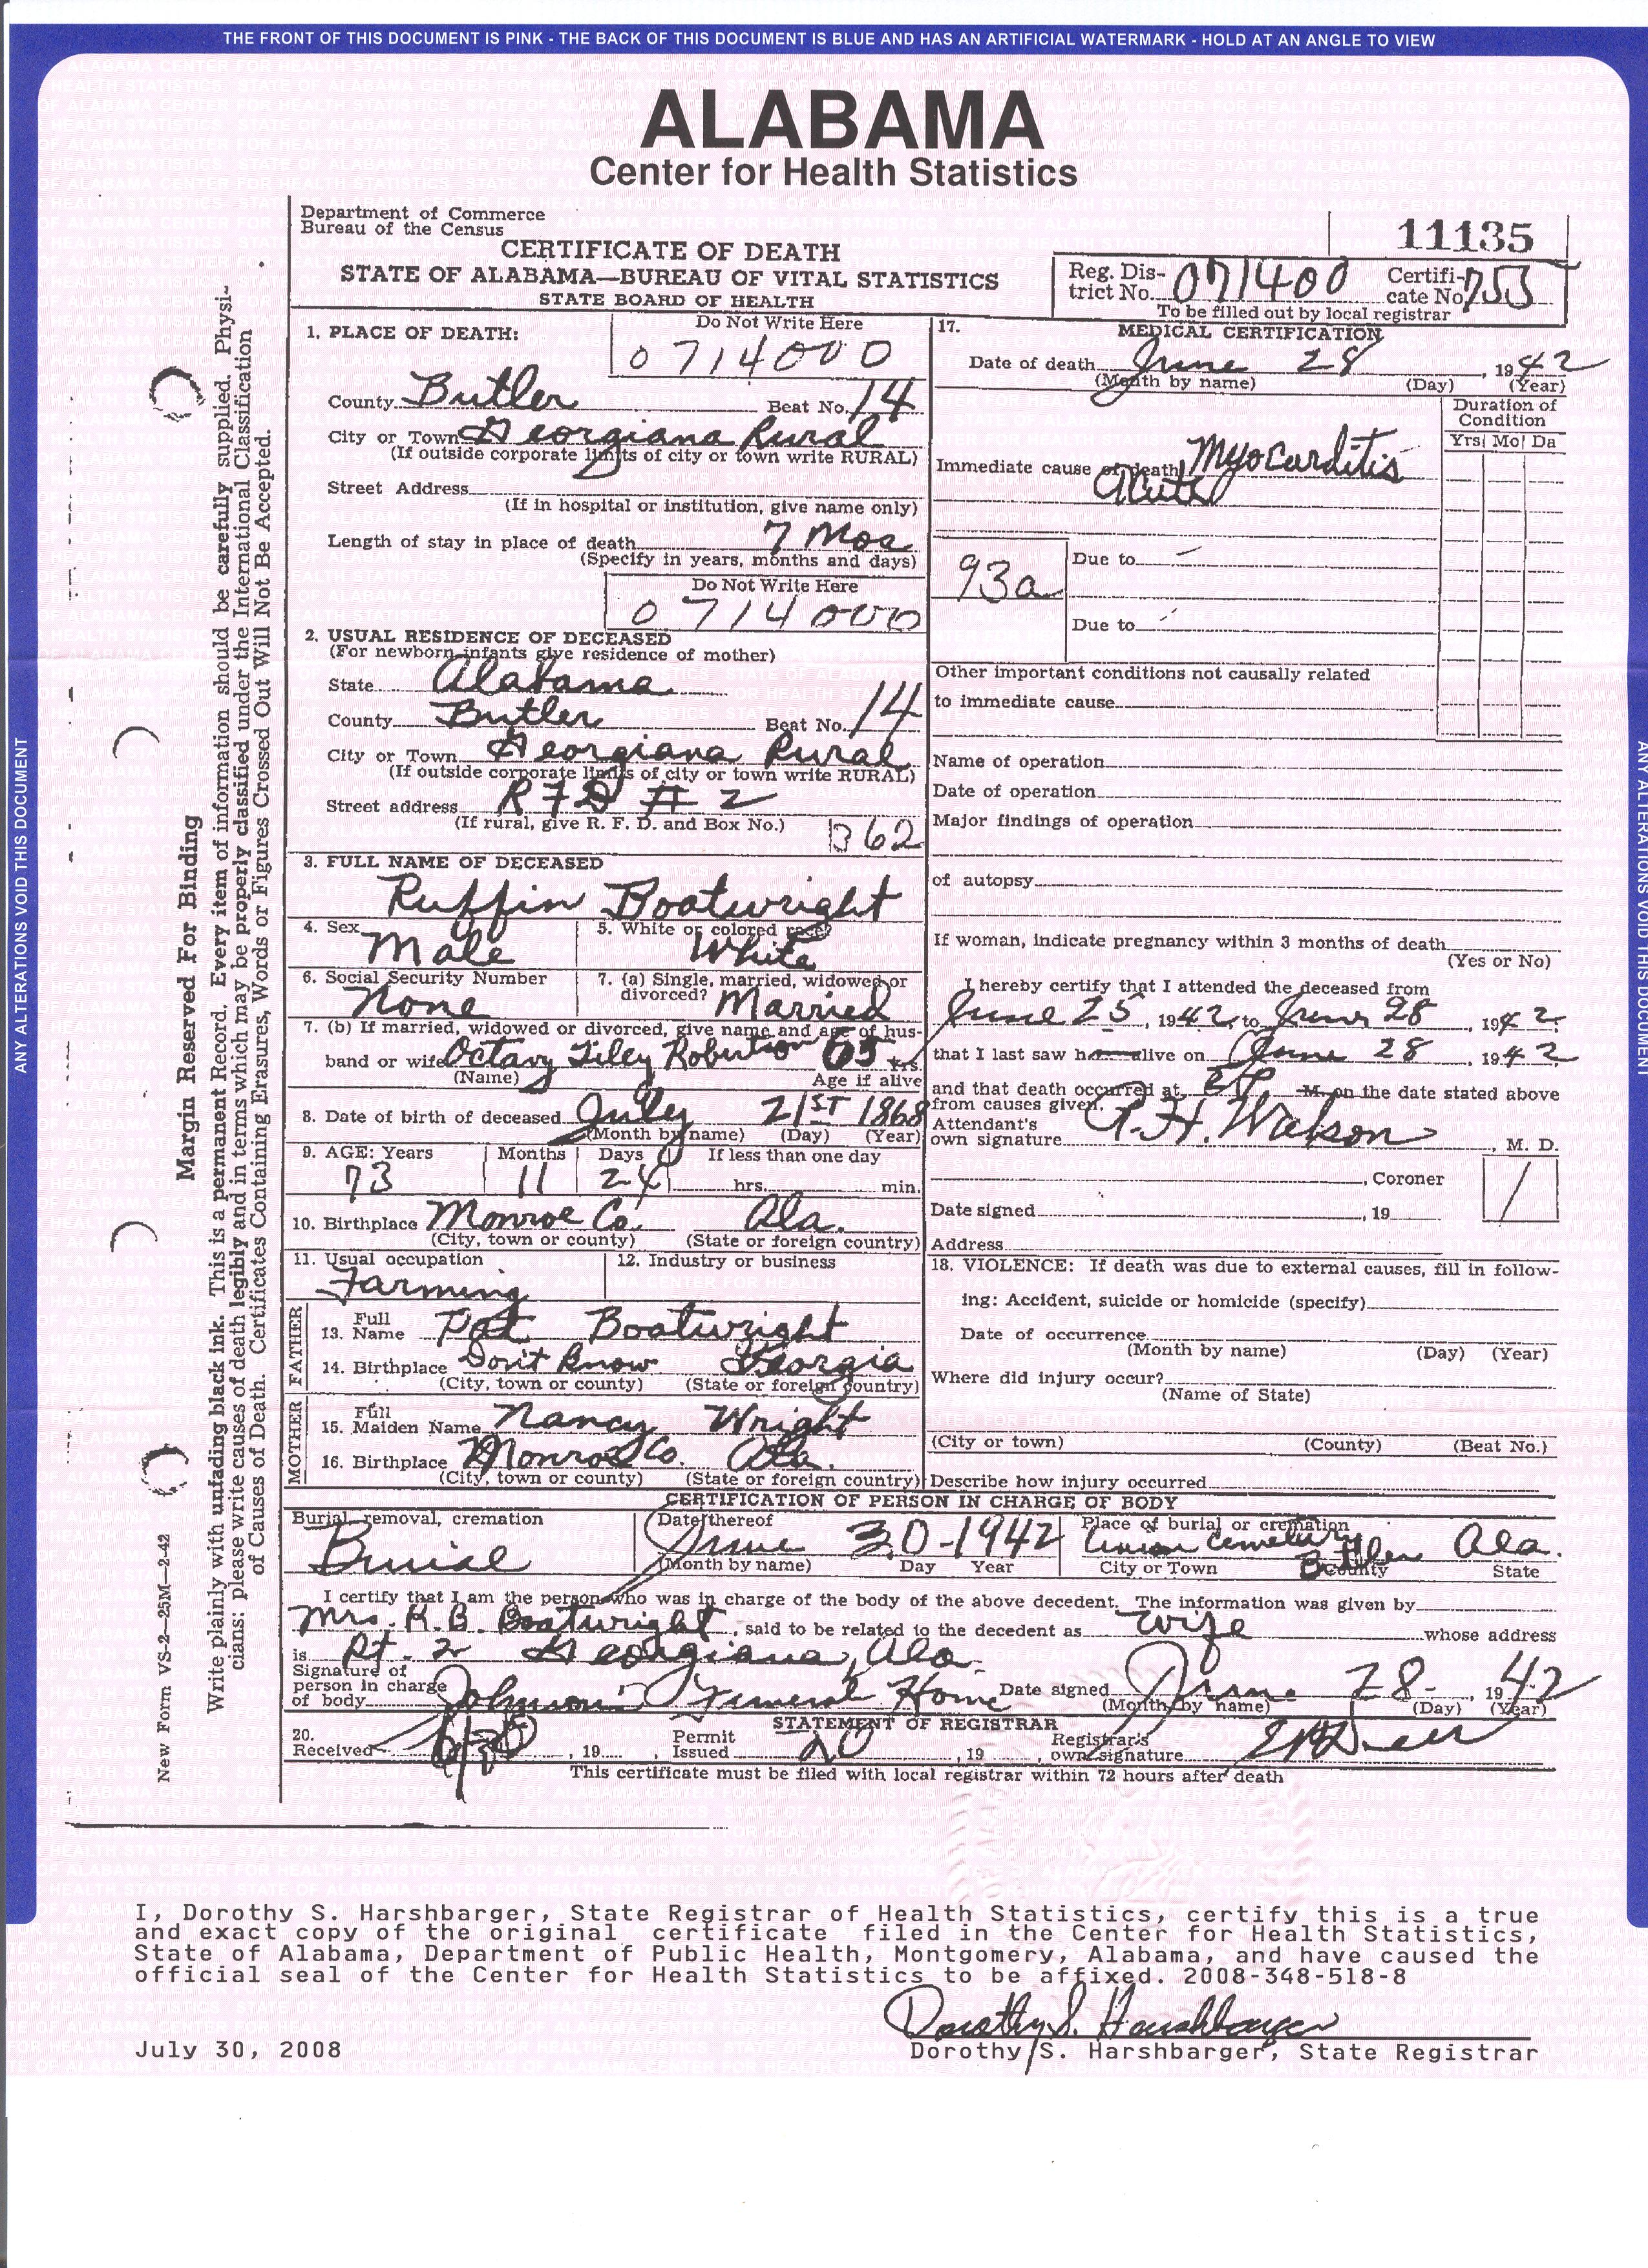 THE FRONT OF THIS DOCUMENT IS PINK - THE BACK OF THIS DOCUMENT IS BLUE AND HAS AN ARTIFICIAL WATERMARK - HOLD AT AN ANGLE TO VIEW
ALABAMA
Center for Health Statistics
Department of Commerce
Bureau of the Census
CERTIFICATE OF DEATH
STATE OF ALABAMA—BUREAU OF VITAL STATISTICS
STATE BOARD OF HEALTH
11135
Reg. District No. 071400 Certificate No.
To be filled out by local registrar
1. PLACE OF DEATH:
Do Not Write Here
0714000
County Butler Beat No. 14
City or Town Georgiana Rural
(If outside corporate limits of city or town write RURAL)
Street Address
(If in hospital or institution, give name only)
Length of stay in place of death 7 Mos
(Specify in years, months and days)
Do Not Write Here
0714000
2. USUAL RESIDENCE OF DECEASED
(For newborn infants give residence of mother)
State Alabama
County Butler Beat No. 14
City or Town Georgiana Rural
(If outside corporate limits of city or town write RURAL)
Street address RFD # 2
(If rural, give R. F. D. and Box No.)
B 62
3. FULL NAME OF DECEASED
Ruffin Boatwright
4. Sex Male
5. White or colored race? White
6. Social Security Number None
7. (a) Single, married, widowed or divorced? Married
7. (b) If married, widowed or divorced, give name and age of husband or wife Octavy Tiley Robertson 65 yrs.
(Name) Age if alive
8. Date of birth of deceased July 21ST 1868
(Month by name) (Day) (Year)
9. AGE: Years Months Days If less than one day
73 11 24 hrs. min.
10. Birthplace Monroe Co. Ala.
(City, town or county) (State or foreign country)
11. Usual occupation Farming
12. Industry or business
FATHER
13. Full Name Pat Boatwright
14. Birthplace Don't Know Georgia
(City, town or county) (State or foreign country)
MOTHER
15. Full Maiden Name Nancy Wright
16. Birthplace Monroe Co. Ala.
(City, town or county) (State or foreign country)
17. MEDICAL CERTIFICATION
Date of death June 28, 1942
(Month by name) (Day) (Year)
Duration of Condition
Yrs Mo Da
Immediate cause of death Myocarditis
Acute
93a
Due to
Due to
Other important conditions not causally related
to immediate cause
Name of operation
Date of operation
Major findings of operation
of autopsy
If woman, indicate pregnancy within 3 months of death
(Yes or No)
I hereby certify that I attended the deceased from
June 25, 1942, to June 28, 1942
that I last saw h alive on June 28, 1942
and that death occurred at M. on the date stated above
from causes given.
Attendant's own signature Watson, M. D.
, Coroner
Date signed , 19
Address
18. VIOLENCE: If death was due to external causes, fill in following: Accident, suicide or homicide (specify)
Date of occurrence
(Month by name) (Day) (Year)
Where did injury occur?
(Name of State)
(City or town) (County) (Beat No.)
Describe how injury occurred
CERTIFICATION OF PERSON IN CHARGE OF BODY
Burial, removal, cremation Burial
Date thereof June 30-1942
(Month by name) Day Year
Place of burial or cremation Union Cemetery Butler Ala.
City or Town County State
I certify that I am the person who was in charge of the body of the above decedent. The information was given by
Mrs. R. B. Boatwright, said to be related to the decedent as Wife whose address
is Rt. 2 Georgiana, Ala.
Signature of person in charge of body Johnson Funeral Home Date signed June 28-, 1942
(Month by name) (Day) (Year)
STATEMENT OF REGISTRAR
20. Received , 19 , Permit Issued , 19 , Registrar's own signature
This certificate must be filed with local registrar within 72 hours after death
Margin Reserved For Binding
Write plainly with unfading black ink. This is a permanent Record. Every item of information should be carefully supplied. Physicians: please write causes of death legibly and in terms which may be properly classified under the International Classification of Causes of Death. Certificates Containing Erasures, Words or Figures Crossed Out Will Not Be Accepted.
New Form VS-2—25M—2-42
ANY ALTERATIONS VOID THIS DOCUMENT
ANY ALTERATIONS VOID THIS DOCUMENT
I, Dorothy S. Harshbarger, State Registrar of Health Statistics, certify this is a true
and exact copy of the original certificate filed in the Center for Health Statistics,
State of Alabama, Department of Public Health, Montgomery, Alabama, and have caused the
official seal of the Center for Health Statistics to be affixed. 2008-348-518-8
Dorothy S. Harshbarger
July 30, 2008
Dorothy S. Harshbarger, State Registrar